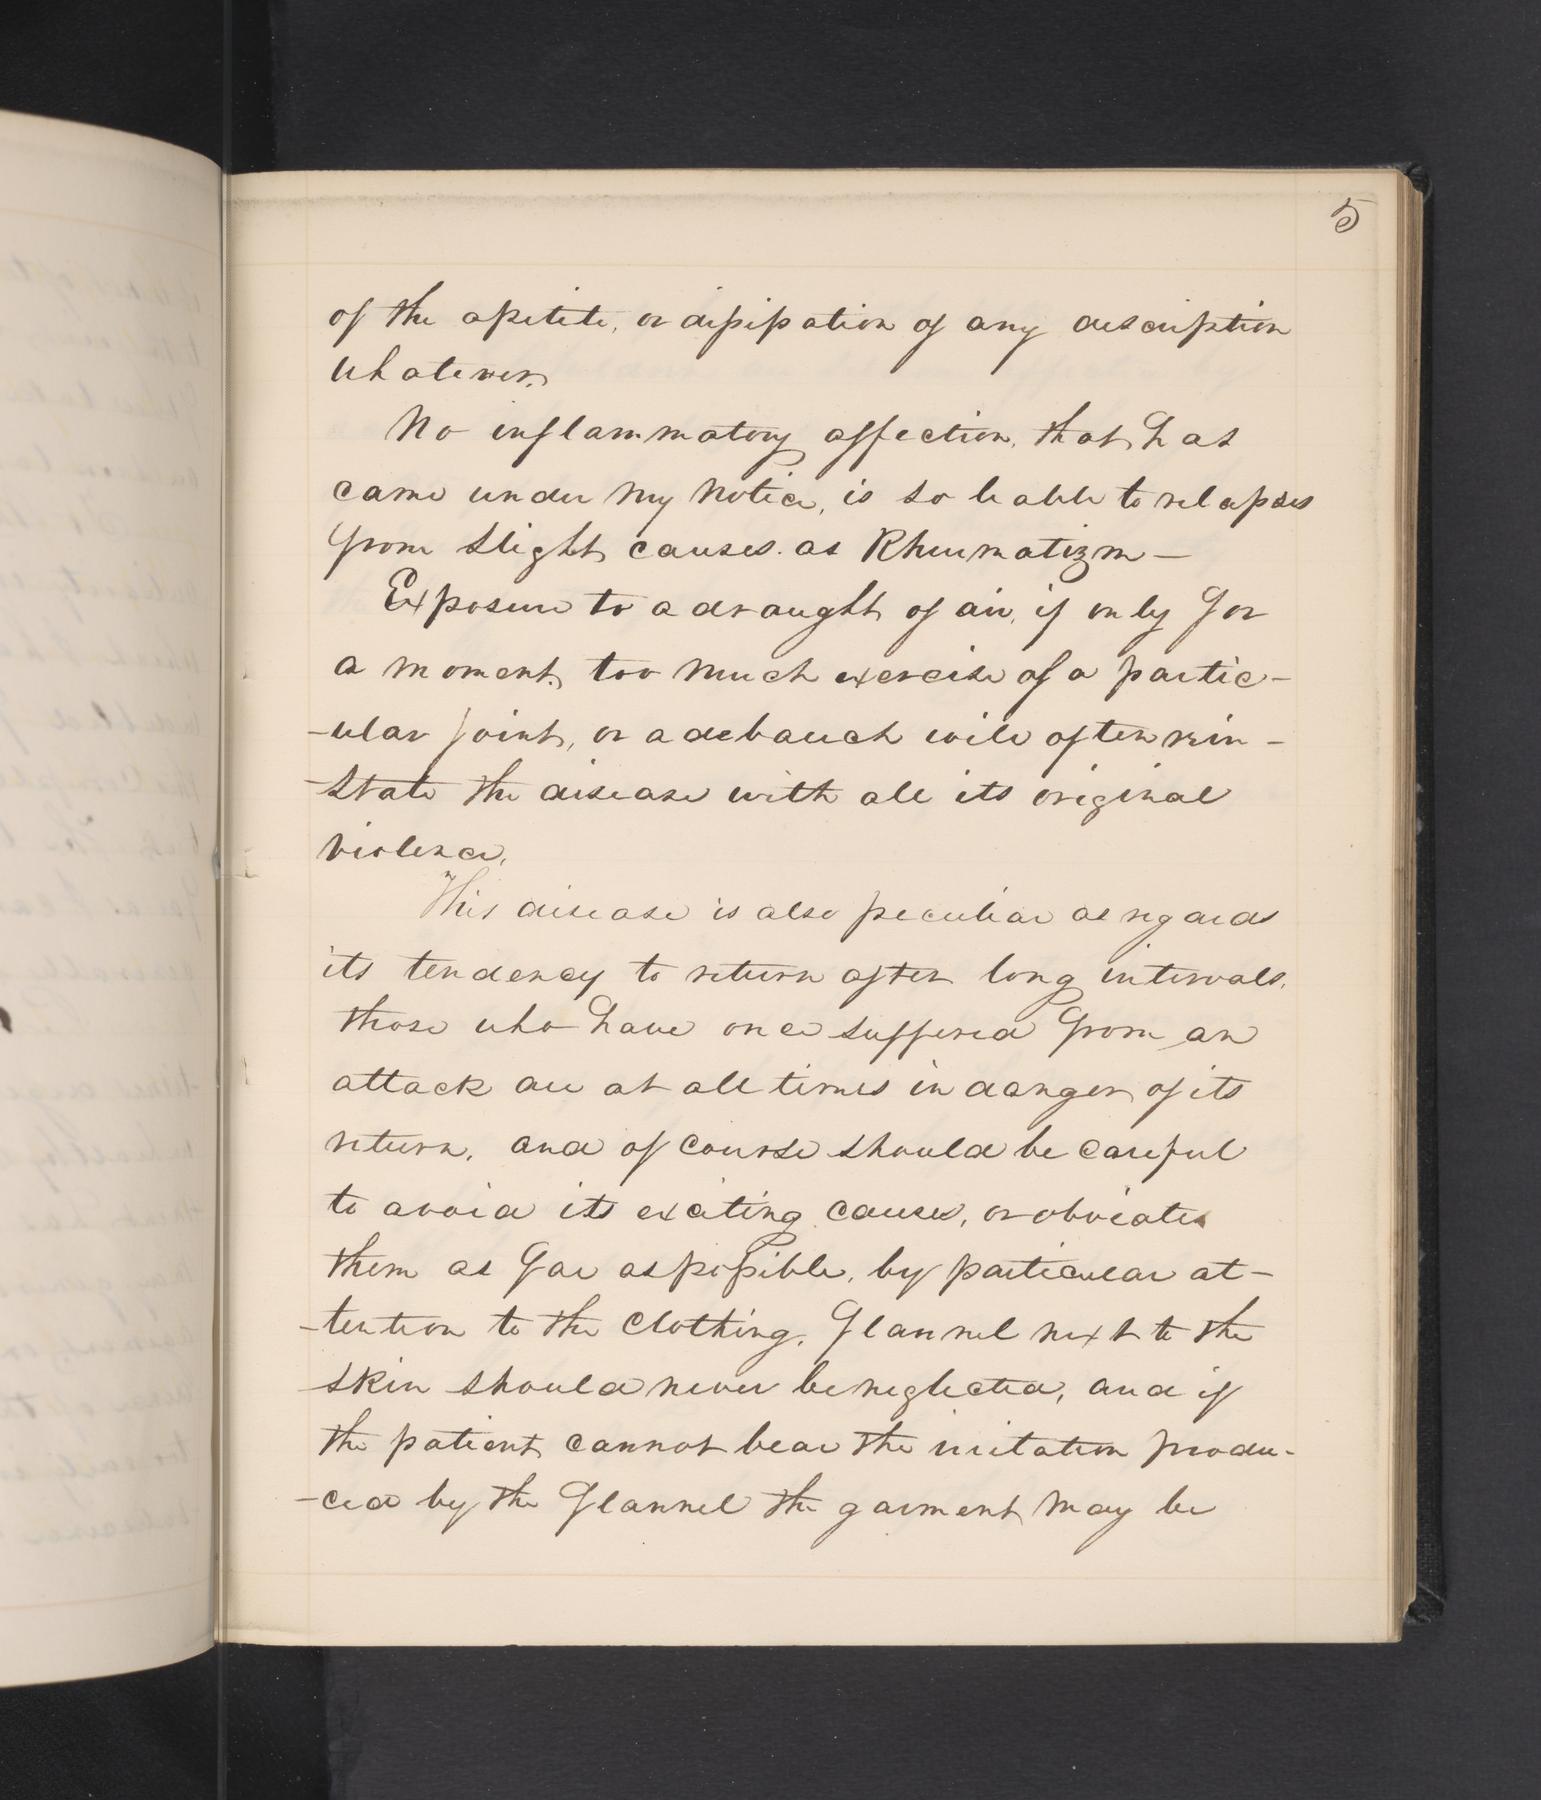 5
of the apitite, or dissipation of any description
whatever.
No inflammatory affection, that has
came under my notice, is so leable to relapses
from slight causes. as Rheumatizm —
Exposure to a draught of air, if only for
a moment, too much exercise of a partic-
-ular joint, or a debauch will often rein-
-state the disease with all its original
violence.
This disease is also peculiar as regards
its tendency to return after long intervals.
those who have once suffered from an
attack are at all times in danger of its
return, and of course should be careful
to avoid its exciting causes, or obviate
them as far as possible, by particular at-
-tention to the clothing. Flannel next to the
skin should never be neglected, and if
the patient cannot bear the irritation produ-
-ced by the flannel the garment may be